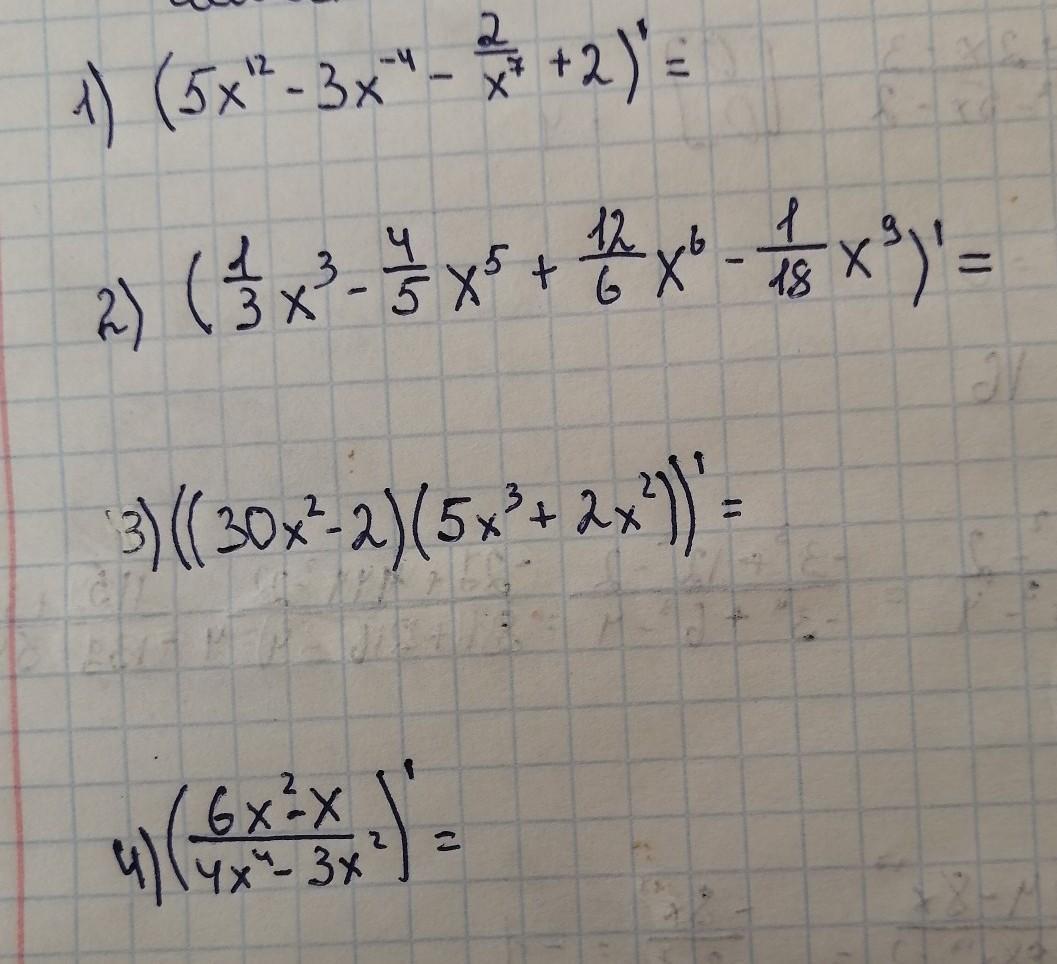 1) (5x¹² - 3x⁻⁴ - 2/x⁷ + 2)' =
2) (1/3 x³ - 4/5 x⁵ + 12/6 x⁶ - 1/18 x⁹)' =
3) ((30x² - 2)(5x³ + 2x²))' =
4) ((6x² - x)/(4x⁴ - 3x²))' =